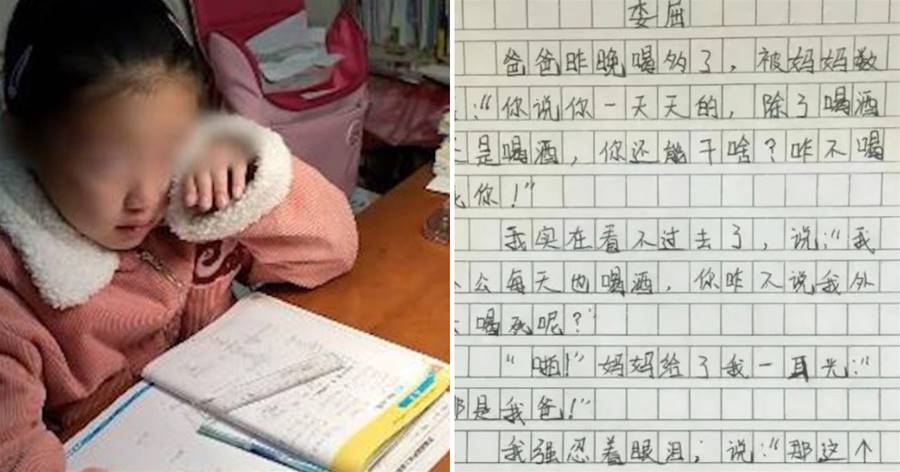 委屈
爸爸昨晚喝多了，被妈妈数
：“你说你一天天的，除了喝酒
是喝酒，你还能干啥？咋不喝
你！”
我实在看不过去了，说：“我
公每天也喝酒，你咋不说我外
喝死呢？”
“啪！”妈妈给了我一耳光：“
是我爸！”
我强忍着眼泪；说：“那这个